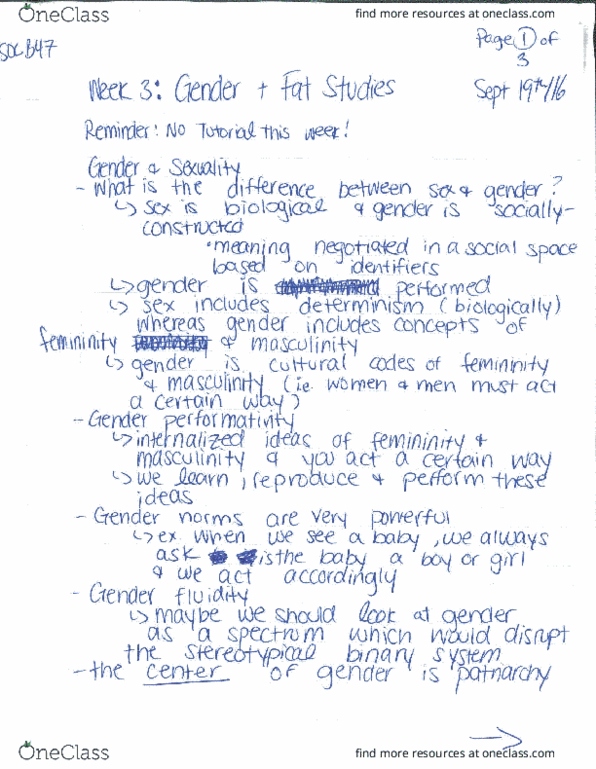 OneClass
find more resources at oneclass.com
SOCB47
Page 1 of
3
Week 3: Gender + Fat Studies
Sept 19th/16
Reminder: No Tutorial this week!
Gender & Sexuality
- What is the difference between sex & gender?
↳ sex is biological & gender is socially-
constructed
•meaning negotiated in a social space
based on identifiers
↳ gender is performed
↳ sex includes determinism (biologically)
whereas gender includes concepts of
femininity & masculinity
↳ gender is cultural codes of femininity
& masculinity (i.e. women & men must act
a certain way)
- Gender performativity
↳ internalized ideas of femininity &
masculinity & you act a certain way
↳ we learn, reproduce & perform these
ideas
- Gender norms are very powerful
↳ ex. When we see a baby, we always
ask is the baby a boy or girl
& we act accordingly
- Gender fluidity
↳ maybe we should look at gender
as a spectrum which would disrupt
the stereotypical binary system
- the center of gender is patriarchy
→
OneClass
find more resources at oneclass.com